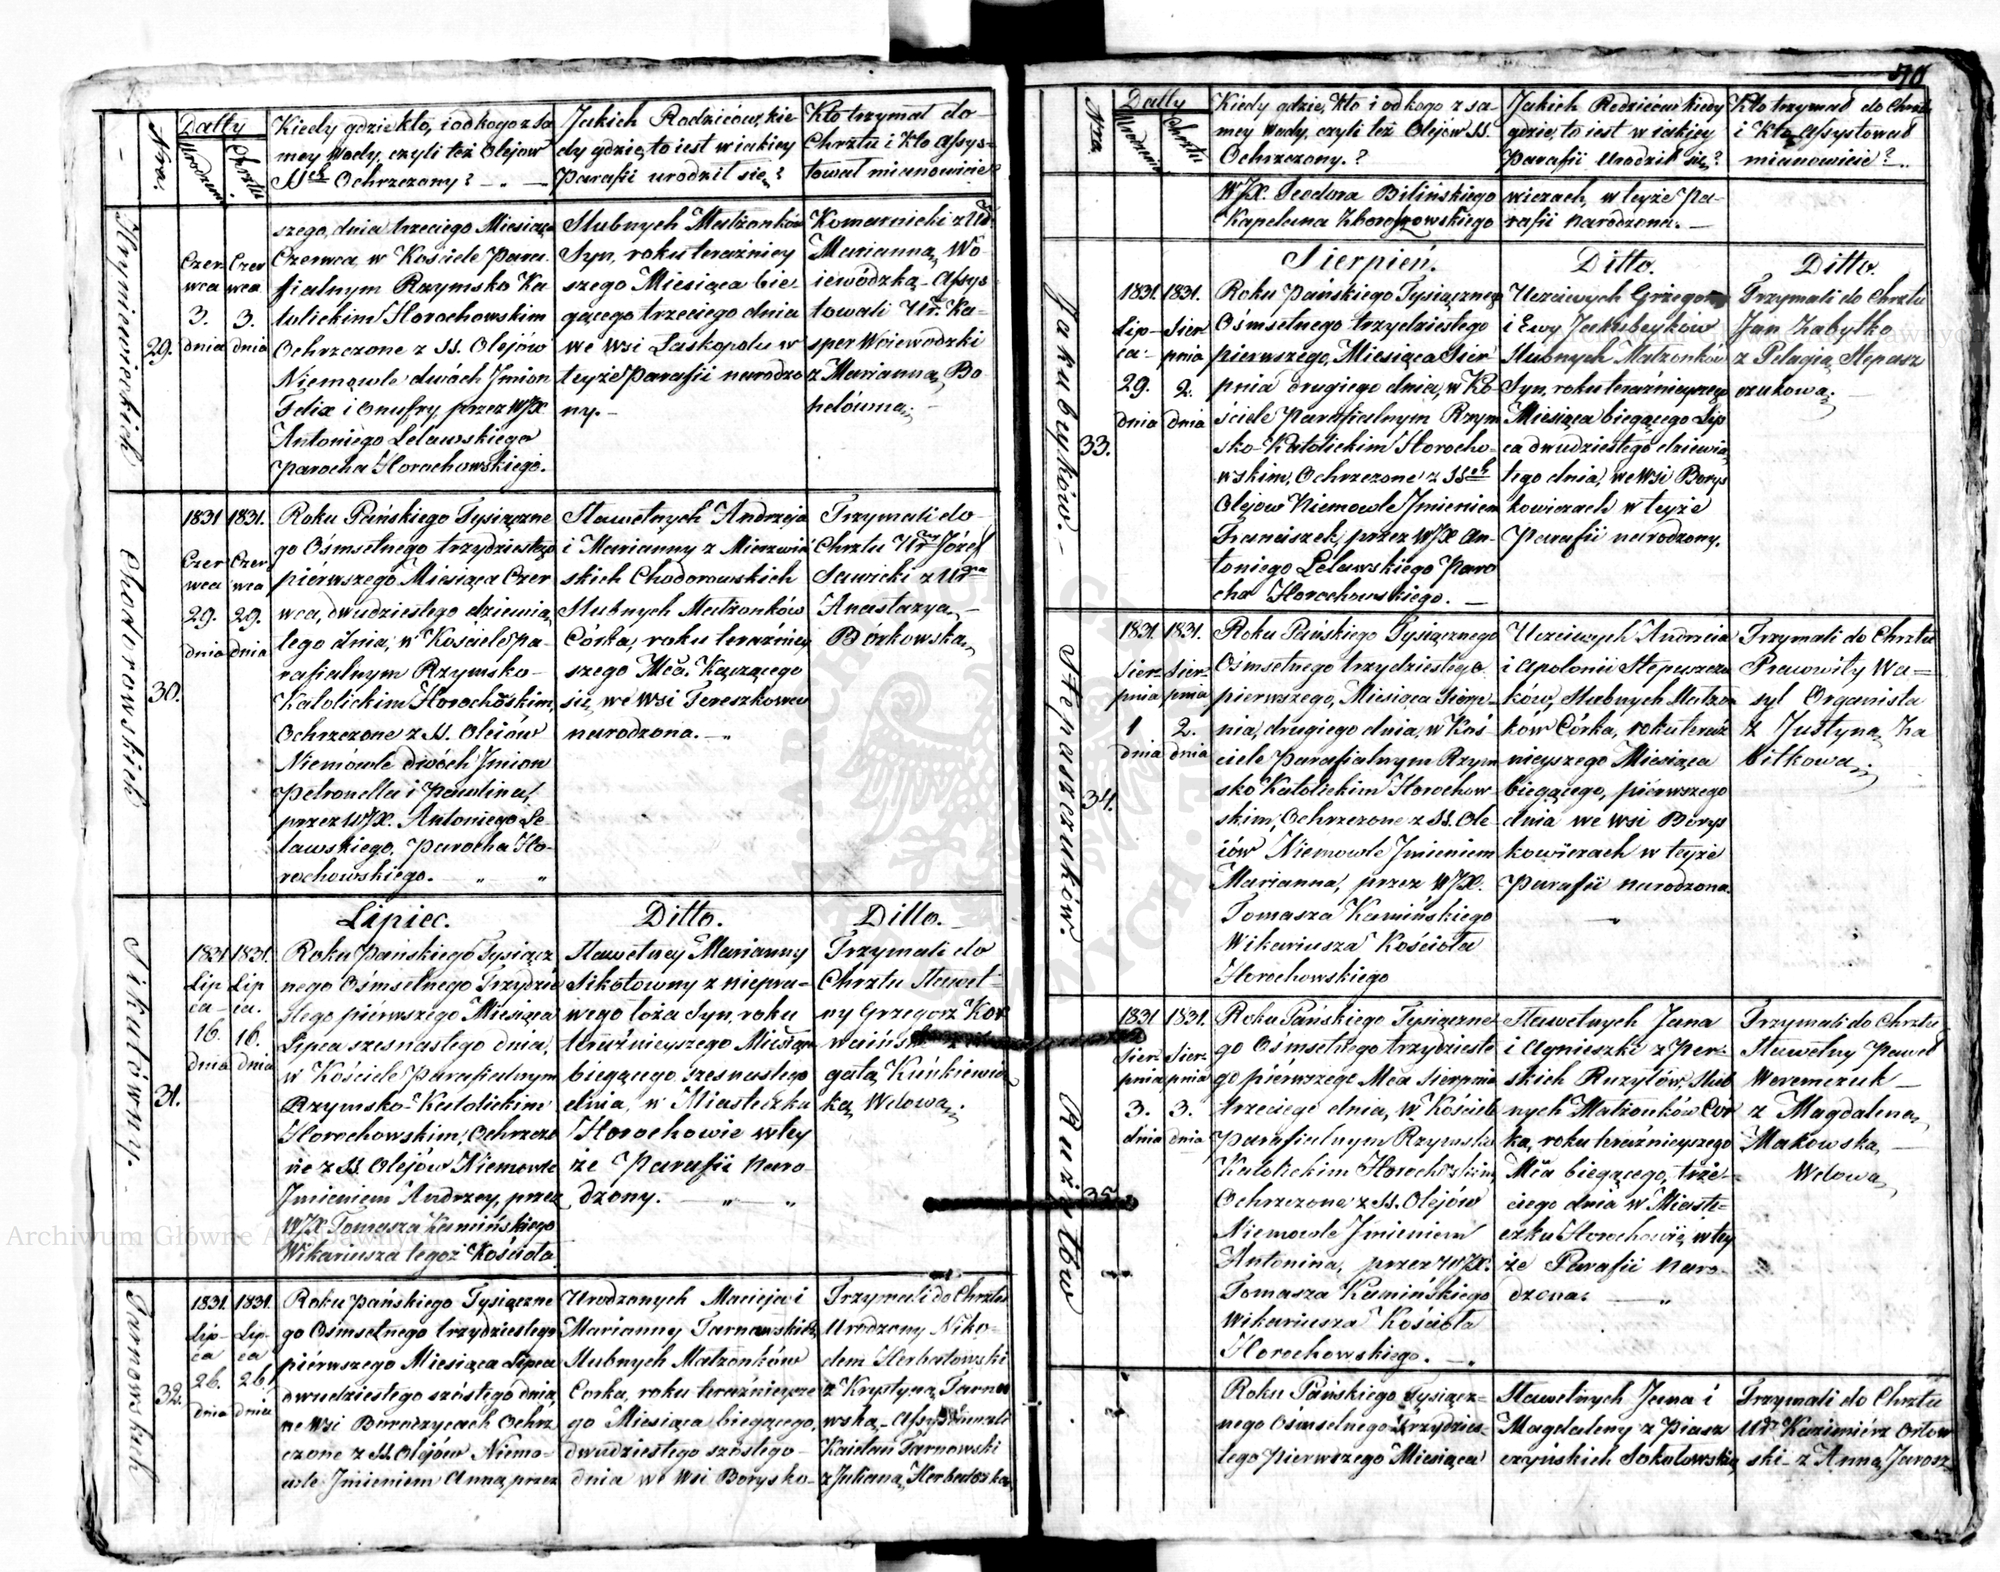 Datty
Nro.
Urodzenia
Chrztu
Kiedy gdzie kto, i od kogo z sa
mey wody, czyli też Olejow
SSch Ochrzczony?
Jakich Rodziców, kie
dy gdzie, to iest w iakiey
Parafii urodził się?
Kto trzymał do
Chrztu i Kto Assys-
tował mianowicie?
29.
Czer
wca
3.
dnia
Czer
wca
3.
dnia
szego, dnia trzeciego Miesiąca
Czerwca, w Kościele Para
fialnym Rzymsko Ka
tolickim Horochowskim
Ochrzczone z SS. Olejów
Niemowle dwóch Jmion
Felix i Onufry, przez WJX
Antoniego Lelawskiego
Parocha Horochowskiego.
Slubnych Małżonków
Syn, roku teraźniey
szego Miesiąca bie
gącego trzeciego dnia
we wsi Laskopolu w
teyże Parafii narodzo
ny.-
Komarnicki z Ur.
Marianną Wo-
iewódzką - Assys-
towali Ur. Ka-
sper Woiewodzki
z Marianną Bo-
helówną.
Chodorowskich
30.
1831
Czer
wca
29.
dnia
1831.
Czer
wca
29.
dnia
Roku Pańskiego Tysiączne
go Ośmsetnego trzydziestego
piérwszego Miesiąca Czer
wca, dwudziestego dziewią
tego dnia, w Kościele Pa-
rafialnym Rzymsko-
Katolickim Horochoskim,
Ochrzczone z SS. Olejów
Niemówle dwóch Jmion
Petronella i Paulina,
przez WJX. Antoniego Le-
lawskiego, Parocha Ho-
rochowskiego.
Sławetnych Andrzeja
i Marianny z Mierzwiń
skich Chodorowskich
Slubnych Małżonków
Córka, roku teraźniey
szego Mca. Kączącego
się, we wsi Tereszkowcu
narodzona.
Trzymali do-
Chrztu Ur. Józef
Sawicki z Urną
Anastazyą
Bórkowską
Lipiec.
Ditto.
Ditto.
Sikutówny.
31.
1831
Lip
ca
16.
dnia
1831.
Lip
ca.
16.
dnia
Roku Pańskiego Tysiącz
nego Ośmsetnego Trzydzie
stego piérwszego Miesiąca
Lipca szesnastego dnia,
w Kościele Parafialnym
Rzymsko-Katolickim
Horochowskim, Ochrzczo
ne z SS. Olejów Niemowle
Jmieniem Andrzey, przez
WJX. Tomasza Kamińskiego
Wikariusza tegoż Kościoła.
Sławetney Marianny
Sikotowny z niepra-
wego łoża Syn, roku
teraźnieyszego Miesiąca
biegącego szesnastego
dnia, w Miasteczku
Horochowie w tey
że Parafii naro
dzony.
Trzymali do
Chrztu Sławet-
ny Grzegorz Kor
gatą Kuńkiewic
ką Wdową.
Tarnowskich
32.
1831.
Lip-
ca
26.
dnia
1831.
Lip-
ca
26.
dnia
Roku Pańskiego Tysiączne
go Ośmsetnego trzydziestego
piérwszego Miesiąca Lipca
dwudziestego szóstego dnia,
we wsi Borodzycach Ochrz
czone z SS. Olejów Niemo-
wle Jmieniem Anna, przez
Urodzonych Macieja i
Marianny Tarnowskich
Slubnych Małżonków
Corka, roku teraźnieysze
go Miesiąca biegącego,
dwudziestego szóstego-
dnia we wsi Borysko-
Trzymali do Chrztu
Urodzony Niko-
dem Herbatowski
z Krystyną Tarno
wską - Assystowali
Kaietan Tarnowski
z Julianą Herbatoską
70
Nro.
Datty
Urodzenia
Chrztu
Kiedy gdzie, Kto i od kogo z sa-
mey wody, czyli też Olejów SS.
Ochrzczony.?
Jakich Rodziców kiedy
gdzie, to iest w iakiey
Parafii Urodził się?
Kto trzymał do Chrztu
i Kto Assystował
mianowicie?
WJX. Teodora Bilińskiego
Kapelana
wiczach, w teyże Pa-
rafii narodzona.
Sierpień.
Ditto.
Ditto.
Jakubykiw.
33.
1831.
Lip-
ca
29.
dnia
1831.
Sier
pnia
2.
dnia
Roku Pańskiego Tysiącznego
Ośmsetnego trzydziestego
pierwszego, Miesiąca Sier
pnia drugiego dnia, w Ko-
ściele Parafialnym Rzym
sko-Katolickim Horocho-
wskim, Ochrzczone z SSch
Olejow Niemowle Jmieniem
Franciszek, przez WJX An-
toniego Lelawskiego Paro
cha Horochowskiego.
Uczciwych Grzegorza
i Ewy Jakubcyków
Slubnych Małżonków
Syn, roku teraźnieyszego
Miesiąca biegącego Lip
ca dwudziestego dziewią
tego dnia, we wsi Borys
kowiczach w teyże
Parafii narodzony.
Trzymali do Chrztu
Jan Zabytko
z Pelagią Stepasz
czukową.
Stepaszczuków.
34.
1831.
Sier-
pnia
1
dnia
1831.
Sier-
pnia
2.
dnia
Roku Pańskiego Tysiącznego
Ośmsetnego trzydziestego
pierwszego, Miesiąca Sierp-
nia, drugiego dnia, w Koś
ciele Parafialnym Rzym
sko Katolickim Horochow
skim, Ochrzczone z SS. Ole
iów Niemowle Jmieniem
Marianna, przez WJX.
Tomasza Kamińskiego
Wikariusza Kościoła
Horochowskiego
Uczciwych Andrzeia
i Apolonii Stepaszczu
ków, Slubnych Małżon
ków Córka, roku teraź
nieyszego Miesiąca
biegącego, piérwszego
dnia we wsi Borys
kowiczach w teyże
Parafii narodzona.
Trzymali do Chrztu
Prawowity Wa-
syl Organista
z Justyną Za
bitkową.
Ruzitów
35.
1831
Sier-
pnia
3.
dnia
1831.
Sier-
pnia
3.
dnia
Roku Pańskiego Tysiączne-
go Ośmsetnego trzydzieste
go piérwszego Mca Sierpnia
trzeciego dnia, w Kościele
Parafialnym Rzymsko
Katolickim Horochoskim,
Ochrzczone z SS. Olejów
Niemowle Jmieniem
Antonina, przez WJX.
Tomasza Kamińskiego
Wikariusza Kościoła
Horochowskiego.
Sławetnych Jana
i Agnieszki z Per-
skich Ruzytów, Slub
nych Małżonków Cór
ka, roku teraźnieyszego
Mca biegącego, trze-
ciego dnia w Miaste-
czku Horochowie, w tey
że Parafii naro-
dzona.
Trzymali do Chrztu
Sławetny Paweł
Weremczuk
z Magdaleną
Makowską
Wdową
Roku Pańskiego Tysiącz-
nego Ośmsetnego trzydzies-
tego pierwszego Miesiąca
Sławetnych Jana i
Magdaleny z Piasz
czyńskich Sokołowskich
Trzymali do Chrztu
Ur. Kazimiérz Orłow
ski - z Anną Jarosz-
Archiwum Główne Akt Dawnych